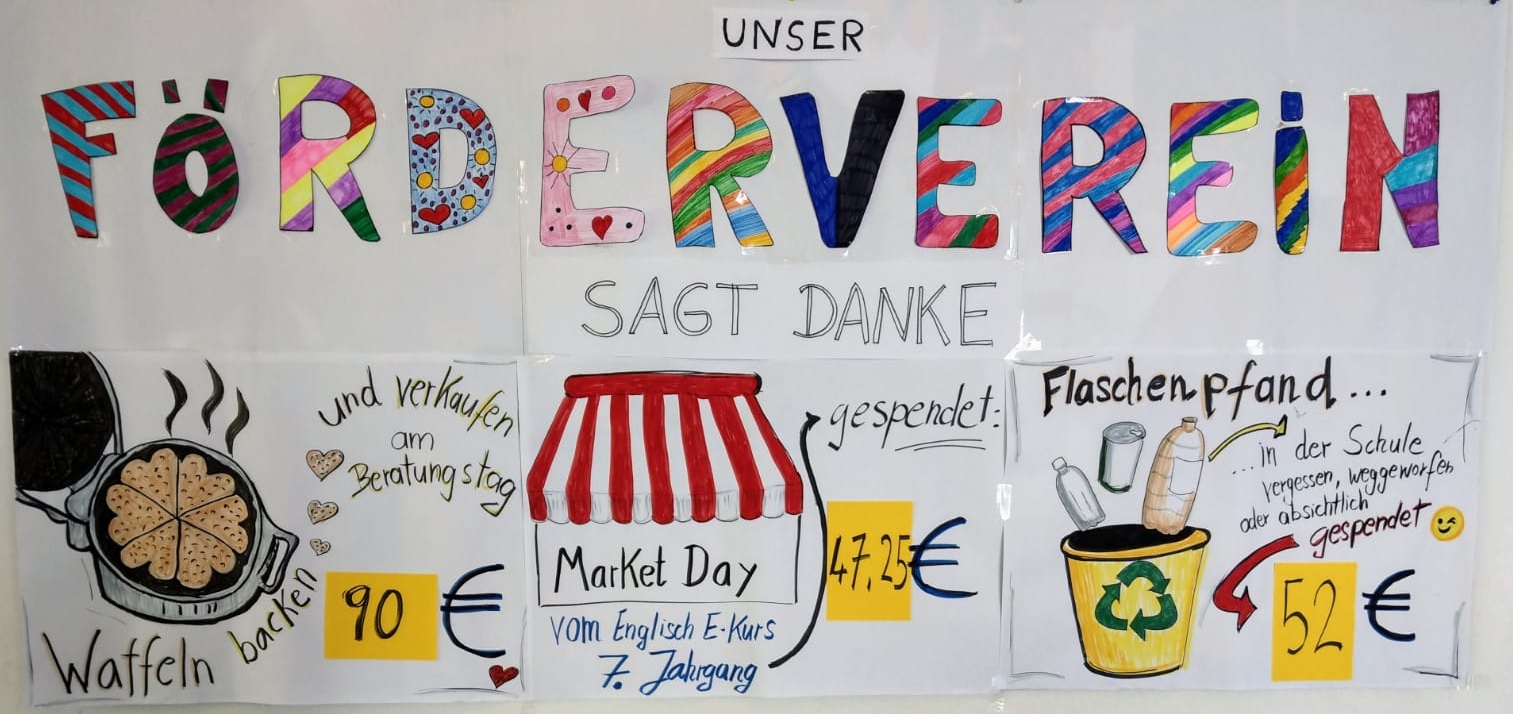 UNSER
FÖRDERVEREiN
SAGT DANKE
Waffeln backen
und verkaufen
am
Beratungstag
90 €
Market Day
vom Englisch E-Kurs
7. Jahrgang
gespendet:
47,25 €
Flaschenpfand...
...in der Schule
vergessen, weggeworfen
oder absichtlich
gespendet
52 €